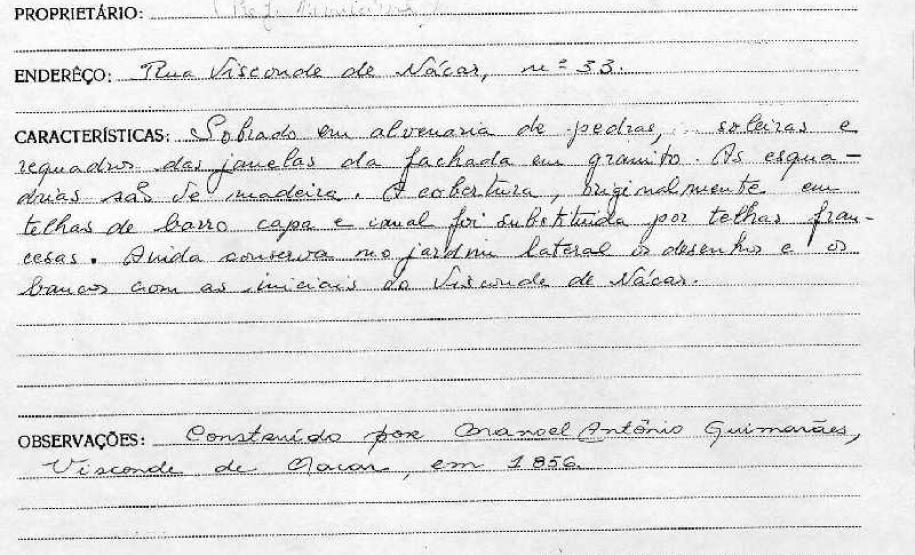 PROPRIETÁRIO:
ENDERÊÇO: Rua Visconde de Nácar, nº 33.
CARACTERÍSTICAS: Sobrado em alvenaria de pedras, soleiras e
requadros das janelas da fachada em granito. As esqua-
drias são de madeira. A cobertura, originalmente em
telhas de barro capa e canal foi substituida por telhas fran-
cesas. Ainda conserva no jardim lateral o desenho e os
bancos com as iniciais do Visconde de Nácar.
OBSERVAÇÕES: Construído por Manoel Antônio Guimarães,
Visconde de Nacar, em 1856.